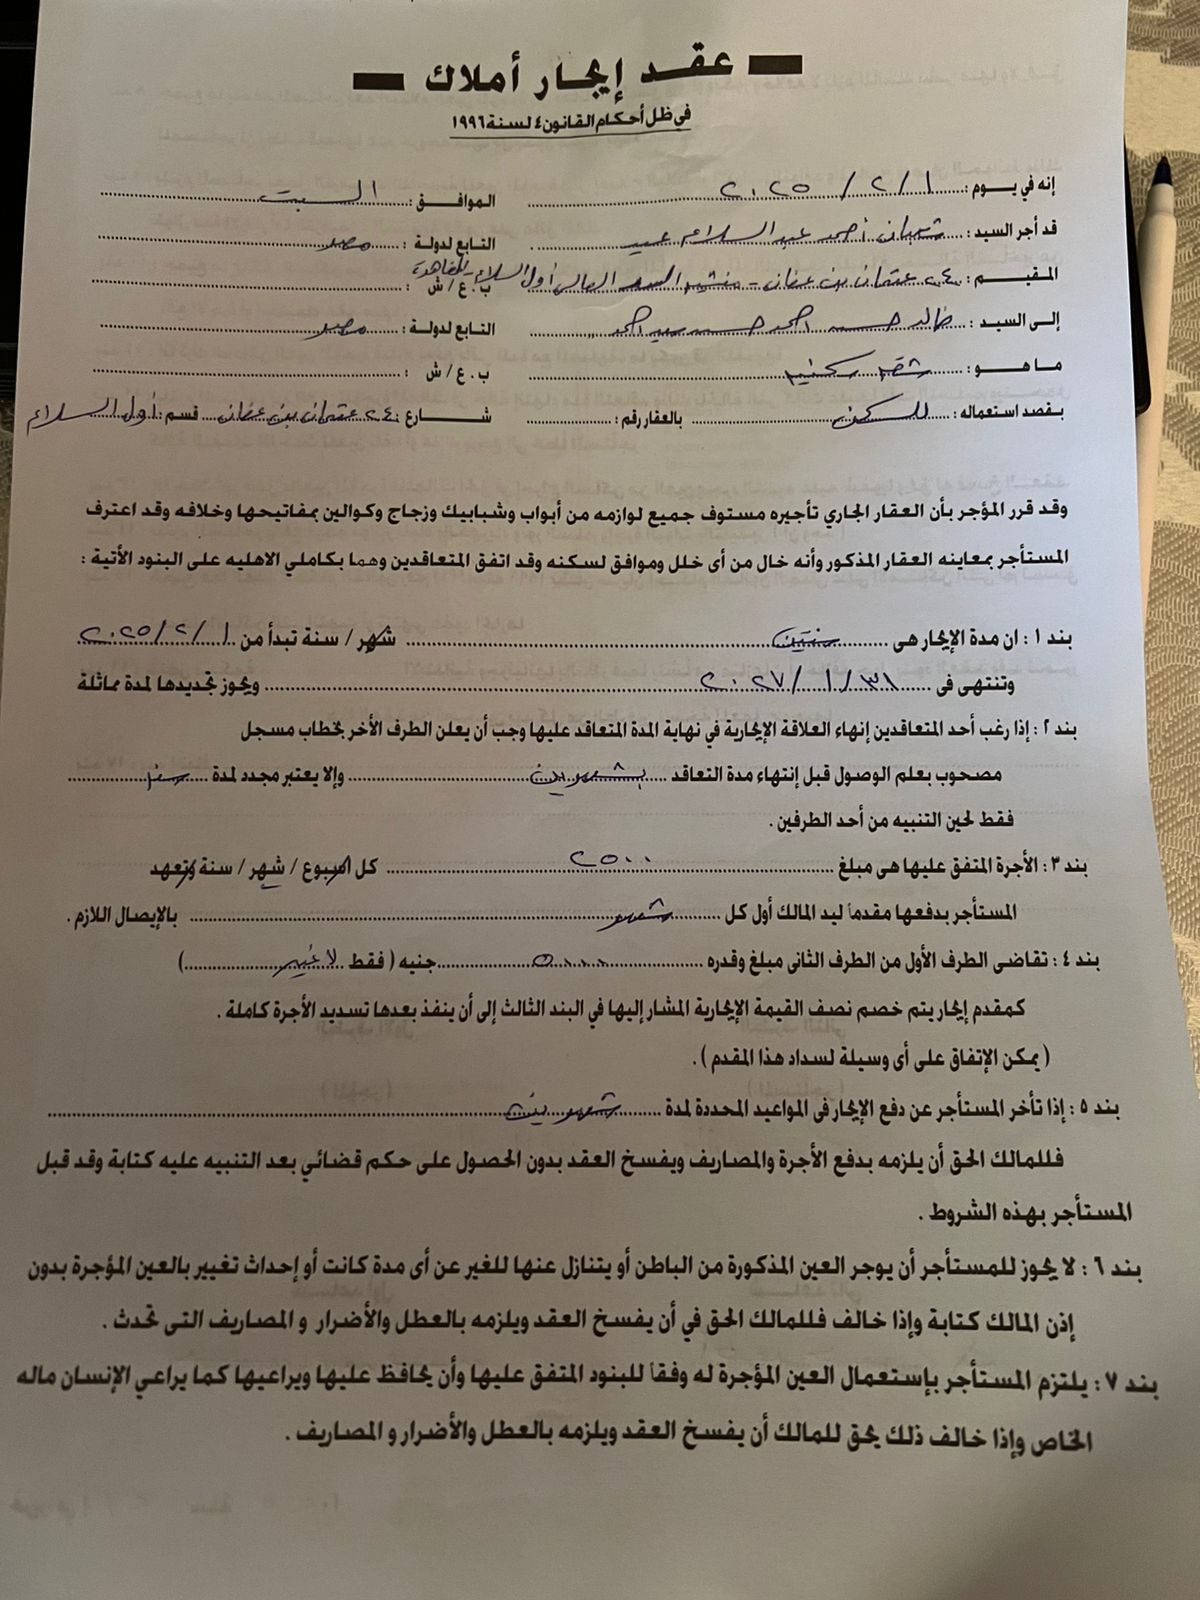 عقد إيجار أملاك
في ظل أحكام القانون ٤ لسنة ١٩٩٦
إنه في يوم : ١ / ٢ / ٢٠٢٥ الموافق : السبت
قد أجر السيد : شعبان أحمد عبد السلام عبيد التابع لدولة : مصر
المقيم : ٢٤ عثمان بن عفان - منشية السد العالى أول السلام - القاهرة ب . ع / ش :
إلى السيد : خالد حسن احمد حسن سيد احمد التابع لدولة : مصر
ما هو : شقة سكنية ب . ع / ش :
بقصد استعماله : للسكن بالعقار رقم : شارع : ٢٤ عثمان بن عفان قسم : أول السلام
وقد قرر المؤجر بأن العقار الجاري تأجيره مستوف جميع لوازمه من أبواب وشبابيك وزجاج وكوالين بمفاتيحها وخلافه وقد اعترف
المستأجر بمعاينه العقار المذكور وأنه خال من أى خلل وموافق لسكنه وقد اتفق المتعاقدين وهما بكاملي الاهليه على البنود الأتية :
بند ١ : ان مدة الإيجار هى سنتين شهر / سنة تبدأ من ١ / ٢ / ٢٠٢٥
وتنتهى فى ٣١ / ١ / ٢٠٢٧ ويجوز تجديدها لمدة مماثلة
بند ٢ : إذا رغب أحد المتعاقدين إنهاء العلاقة الإيجارية في نهاية المدة المتعاقد عليها وجب أن يعلن الطرف الأخر بخطاب مسجل
مصحوب بعلم الوصول قبل إنتهاء مدة التعاقد بشهرين وإلا يعتبر مجدد لمدة سنة
فقط لحين التنبيه من أحد الطرفين .
بند ٣ : الأجرة المتفق عليها هى مبلغ ٢٥٠٠ كل اسبوع / شهر / سنة وتعهد
المستأجر بدفعها مقدماً ليد المالك أول كل شهر بالإيصال اللازم .
بند ٤ : تقاضى الطرف الأول من الطرف الثانى مبلغ وقدره ٥٠٠٠ جنيه ( فقط لا غير )
كمقدم إيجار يتم خصم نصف القيمة الإيجارية المشار إليها في البند الثالث إلى أن ينفذ بعدها تسديد الأجرة كاملة .
( يمكن الإتفاق على أى وسيلة لسداد هذا المقدم ) .
بند ٥ : إذا تأخر المستأجر عن دفع الإيجار فى المواعيد المحددة لمدة شهرين
فللمالك الحق أن يلزمه بدفع الأجرة والمصاريف ويفسخ العقد بدون الحصول على حكم قضائي بعد التنبيه عليه كتابة وقد قبل
المستأجر بهذه الشروط .
بند ٦ : لا يجوز للمستأجر أن يوجر العين المذكورة من الباطن أو يتنازل عنها للغير عن أى مدة كانت أو إحداث تغيير بالعين المؤجرة بدون
إذن المالك كتابة وإذا خالف فللمالك الحق في أن يفسخ العقد ويلزمه بالعطل والأضرار و المصاريف التى تحدث .
بند ٧ : يلتزم المستأجر بإستعمال العين المؤجرة له وفقاً للبنود المتفق عليها وأن يحافظ عليها ويراعيها كما يراعي الإنسان ماله
الخاص وإذا خالف ذلك يحق للمالك أن يفسخ العقد ويلزمه بالعطل والأضرار و المصاريف .